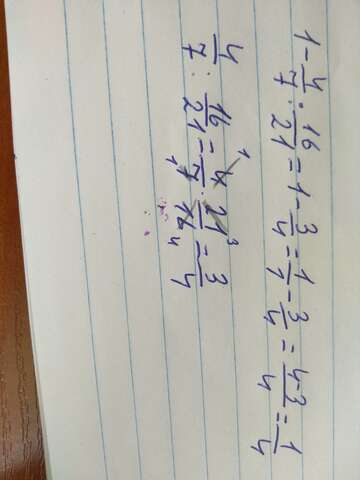 1 - 4/7 : 16/21 = 1 - 3/4 = 1/1 - 3/4 = 4-3/4 = 1/4
4/7 : 16/21 = 4/7 · 21/16 = 3/4